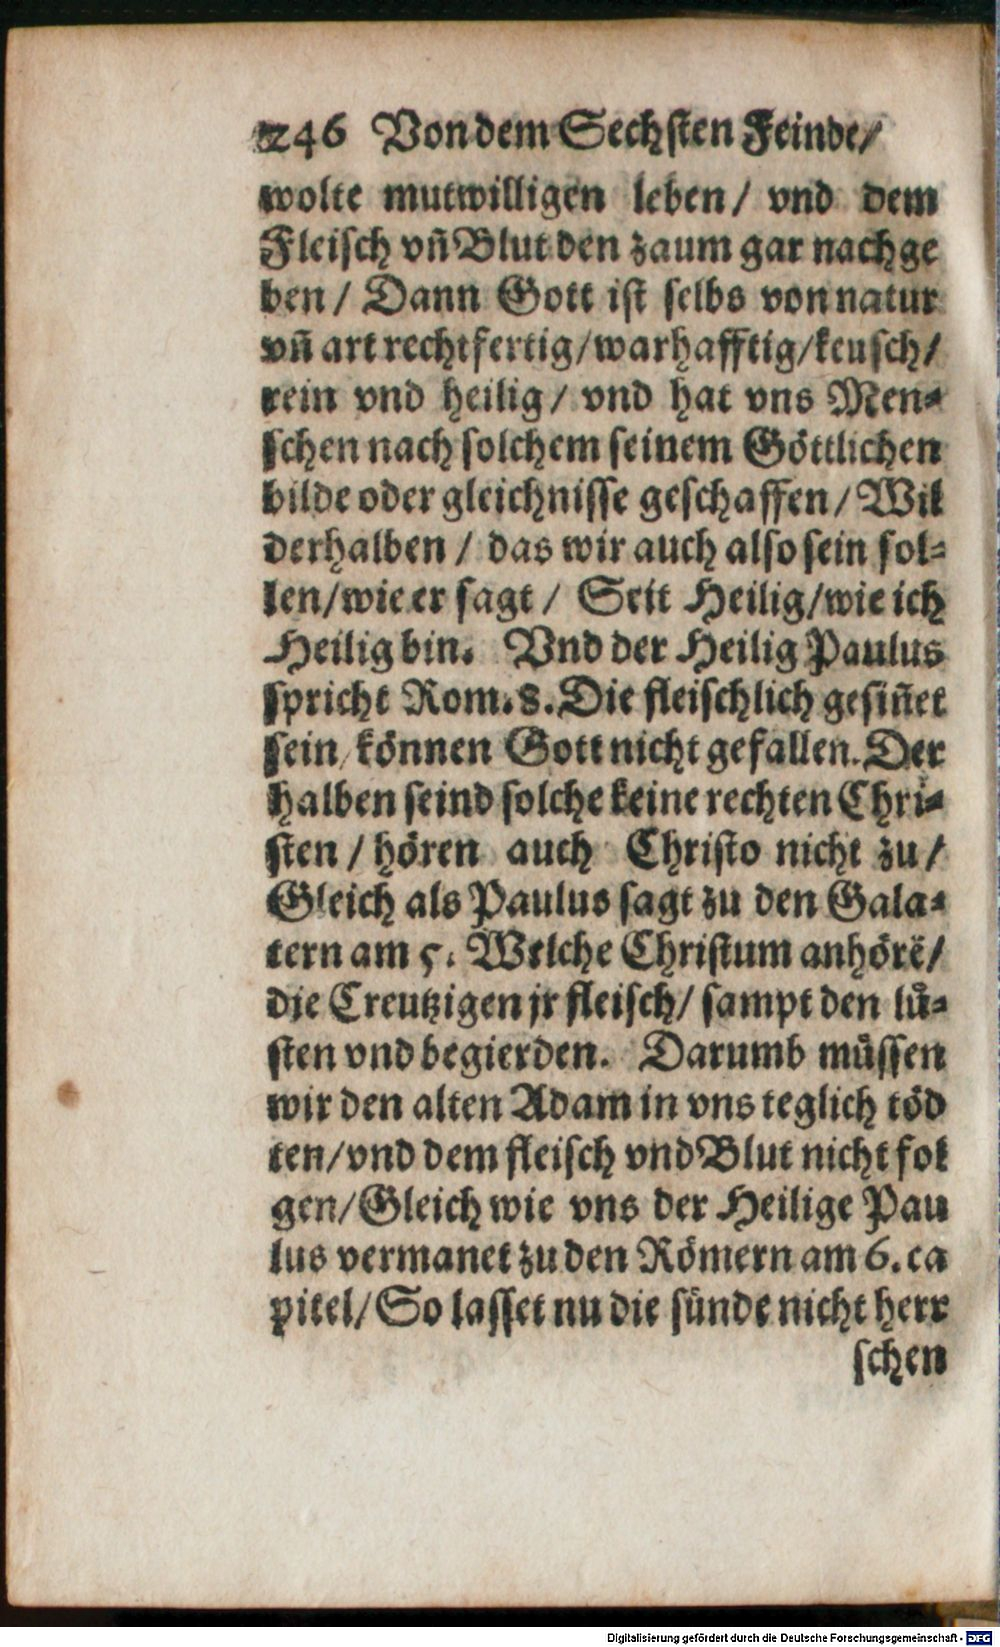 246 Von dem Sechsten Feinde/
wolte mutwilligen leben/ vnd dem
Fleisch vñ Blut den zaum gar nachge
ben/ Dann Gott ist selbs von natur
vñ art rechtfertig/warhafftig/keusch/
rein vnd heilig/ vnd hat vns Men-
schen nach solchem seinem Göttlichen
bilde oder gleichnisse geschaffen/ Wil
derhalben/ das wir auch also sein sol-
len/wie er sagt/ Seit Heilig/wie ich
Heilig bin. Vnd der Heilig Paulus
spricht Rom. 8. Die fleischlich gesiñet
sein/können Gott nicht gefallen. Der
halben seind solche keine rechten Chri-
sten/ hören auch Christo nicht zu/
Gleich als Paulus sagt zu den Gala-
tern am 5. Welche Christum anhörē/
die Creutzigen jr fleisch/ sampt den lü-
sten vnd begierden. Darumb müssen
wir den alten Adam in vns teglich töd
ten/vnd dem fleisch vnd Blut nicht fol
gen/Gleich wie vns der Heilige Pau
lus vermanet zu den Römern am 6. ca
pitel/ So lasset nu die sünde nicht herr
schen
Digitalisierung gefördert durch die Deutsche Forschungsgemeinschaft - DFG